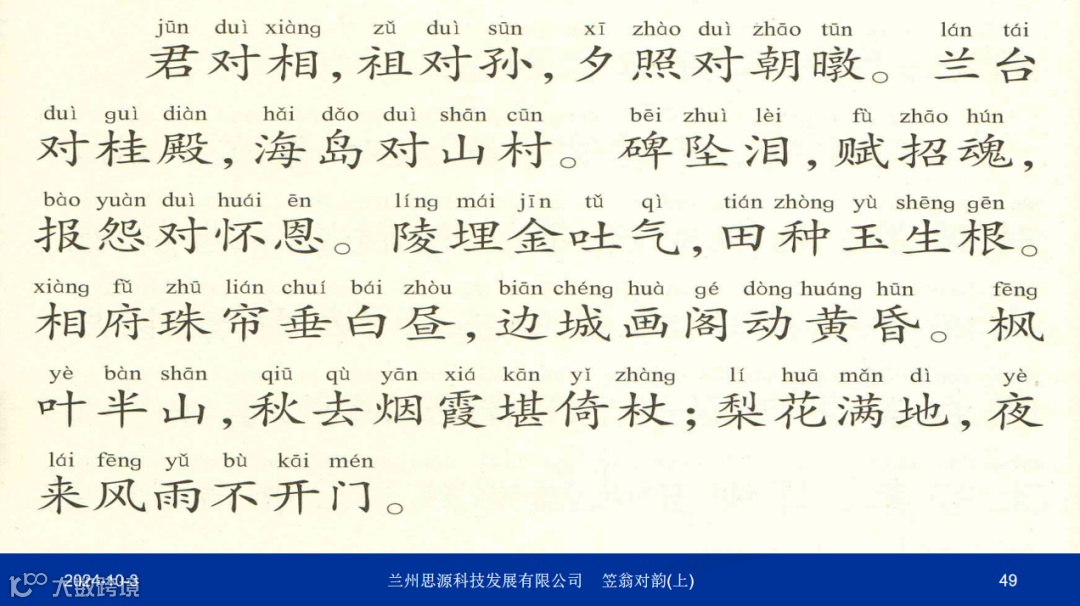 jūn duì xiàng zǔ duì sūn xī zhào duì zhāo tūn lán tái
君对相,祖对孙,夕照对朝暾。兰台
duì guì diàn hǎi dǎo duì shān cūn bēi zhuì lèi fù zhāo hún
对桂殿,海岛对山村。碑坠泪,赋招魂,
bào yuàn duì huái ēn líng mái jīn tǔ qì tián zhòng yù shēng gēn
报怨对怀恩。陵埋金吐气,田种玉生根。
xiàng fǔ zhū lián chuí bái zhòu biān chéng huà gé dòng huáng hūn fēng
相府珠帘垂白昼,边城画阁动黄昏。枫
yè bàn shān qiū qù yān xiá kān yǐ zhàng lí huā mǎn dì yè
叶半山,秋去烟霞堪倚杖;梨花满地,夜
lái fēng yǔ bù kāi mén
来风雨不开门。
2024-10-3 兰州思源科技发展有限公司 笠翁对韵(上) 49
大数跨境